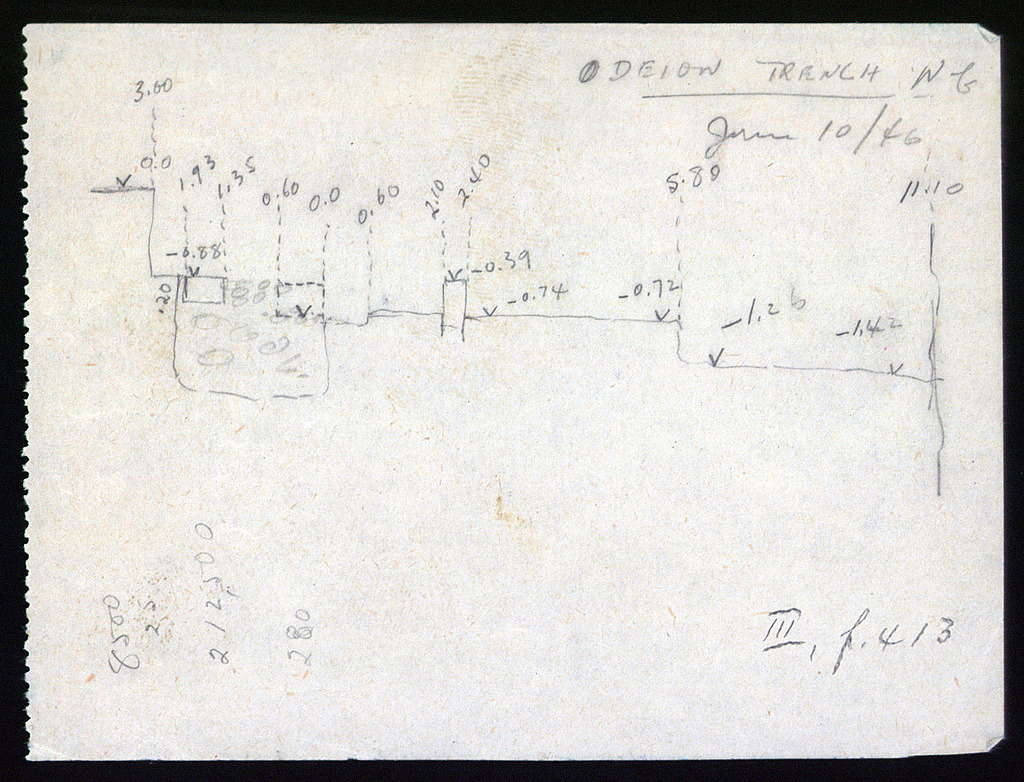 ODEION TRENCH
June 10/46
3.60
0.0
1.93
1.35
0.60
0.0
0.60
2.10
2.40
5.80
11.10
-0.88
.20
-0.39
-0.74
-0.72
-1.26
-1.42
8500
25
212,500
280
III, p.413